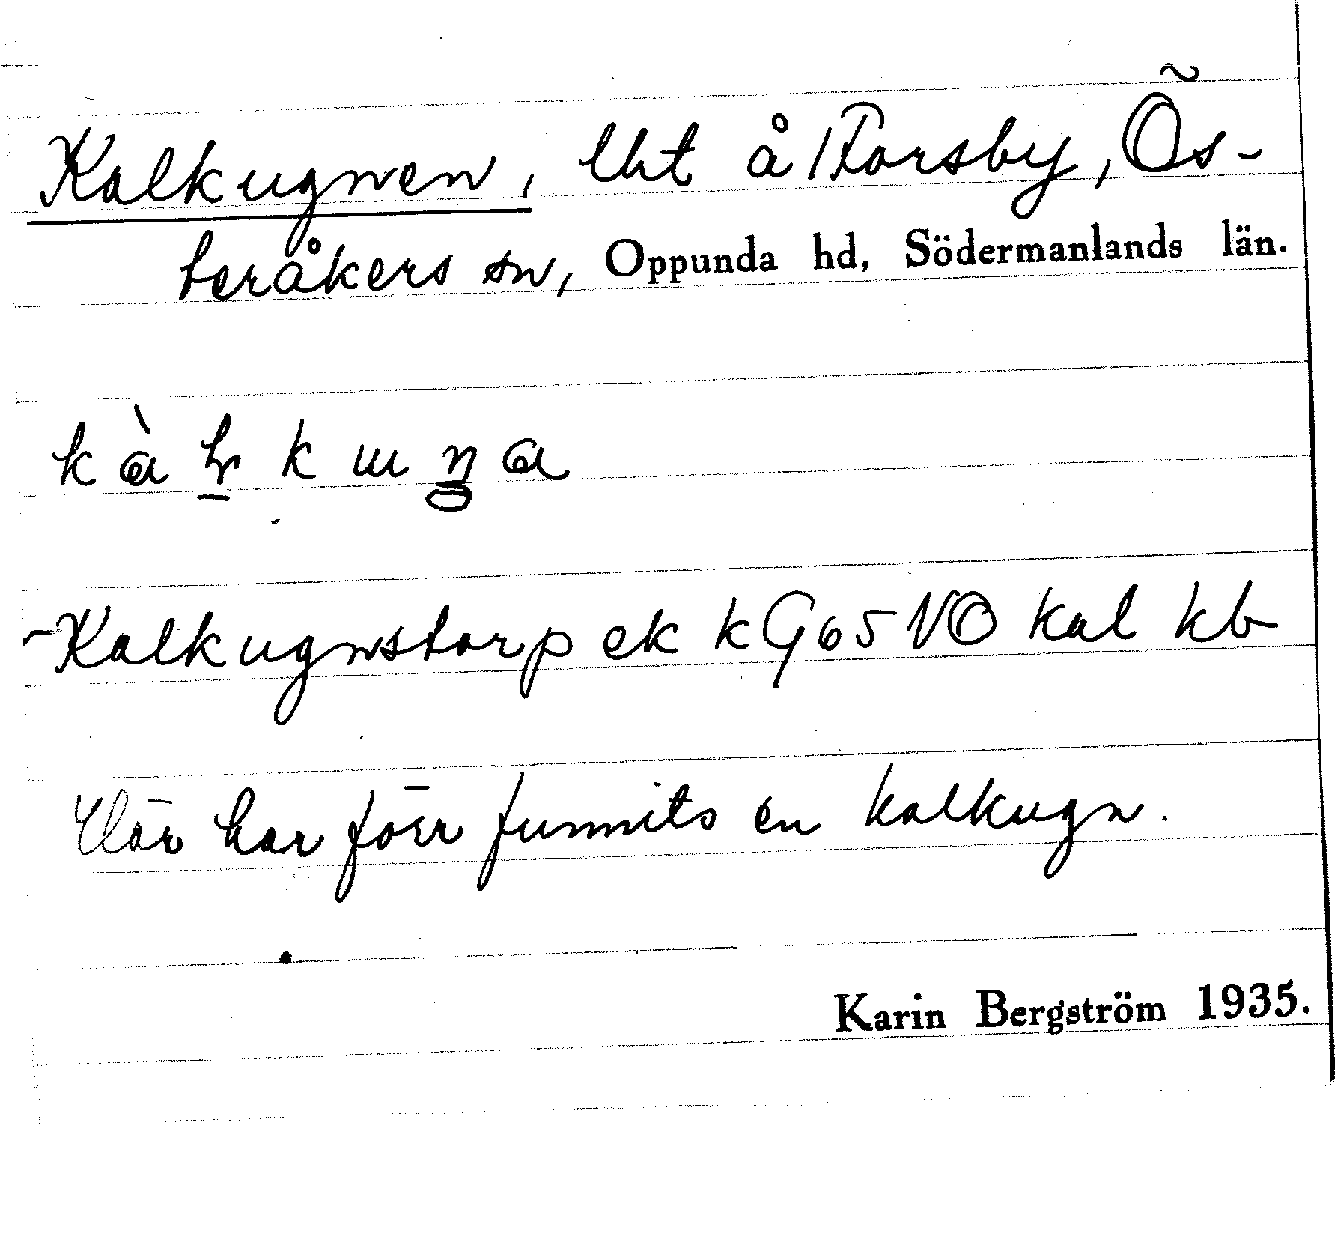 Kalkugnen, lht å /Forsby, Ös-
teråkers sn, Oppunda hd, Södermanlands län.
Kalkugnstorp ek k G65 NO kal kb
Där har förr funnits en kalkugn.
Karin Bergström 1935.